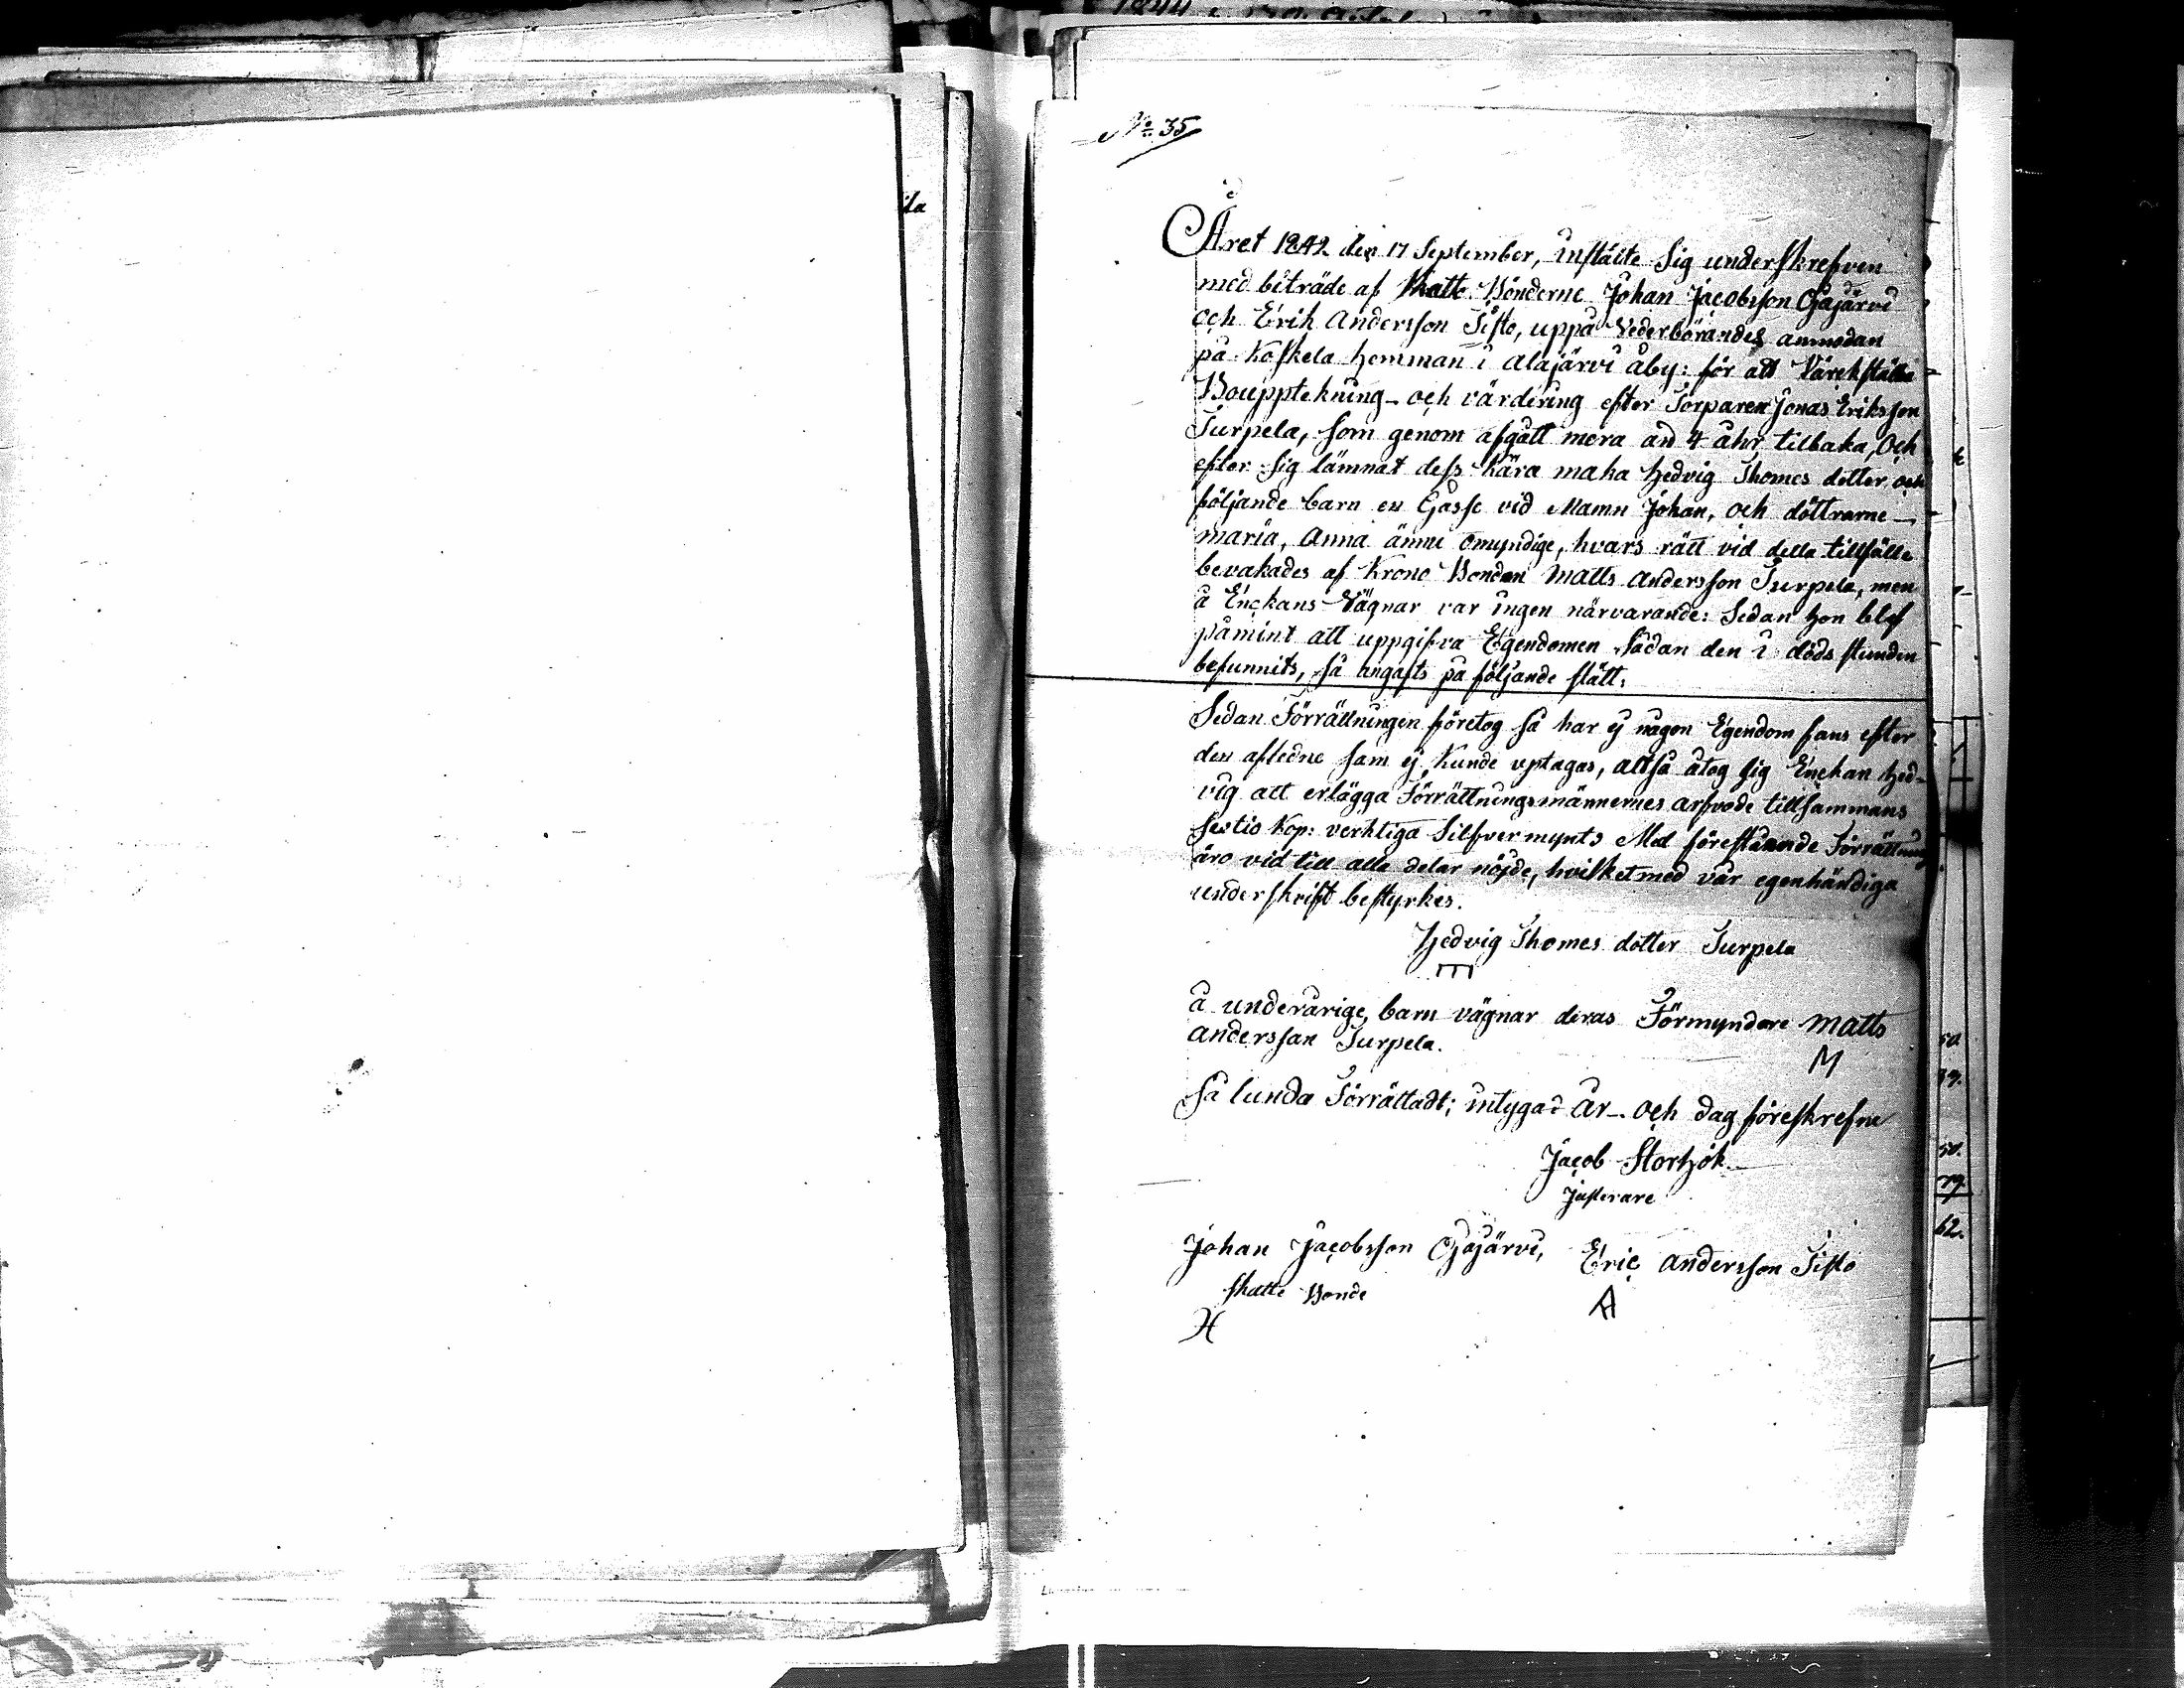 No. 35
Året 1842 den 17 September, instälte sig underskrefven
med biträde af Skatte Bönderne Johan Jacobsson Ojajärvi
och Erik Andersson Sisto, uppå Vederbörandes anmodan
på Koskela hemman i Alajärvi åby: för att Värckställa
Boupptekning- och värdering efter Torparen Jonas Eriksson
Turpela, som genom afgått mera än 4 åhr tilbaka, och
efter sig lämnat dess kära maka Hedvig Thomes dotter och
följande barn en Gåsse vid Namn Johan, och döttrarne
maria, Anna ännu omyndige, hvars rätt vid detta tillfälle
bevakades af Krono Bonden Matts Andersson Turpela, men
å Enckans Vägnar var ingen närvarande: Sedan hon blef
påmint att uppgifva Egendomen sådan den i döds stunden
befunnits, så angafts på följande sätt:
Sedan Förrättningen företog så har ej någon Egendom fans efter
den afledne som ej kunde uptagas, altså åtog sig Enckan Hed-
vig att erlägga Förrättningsmännernes arfvode tillsammans
sextio Kop: verktiga Silfvermynts Med förestående Förrättning
äro vid till alla delar nöjde, hvilket med vår egenhändiga
underskrift bestyrkes.
Hedvig Thomes dotter Turpela
m
å underårige, barn vägnar deras Förmyndare Matts
Andersson Turpela.
M
Så lunda Förrättadt; intygad År- och dag föreskrefne
Jacob Storhök
Justerare
Johan Jacobsson Ojajärvi, Eric Andersson Sisto
skatte Bonde
A
H